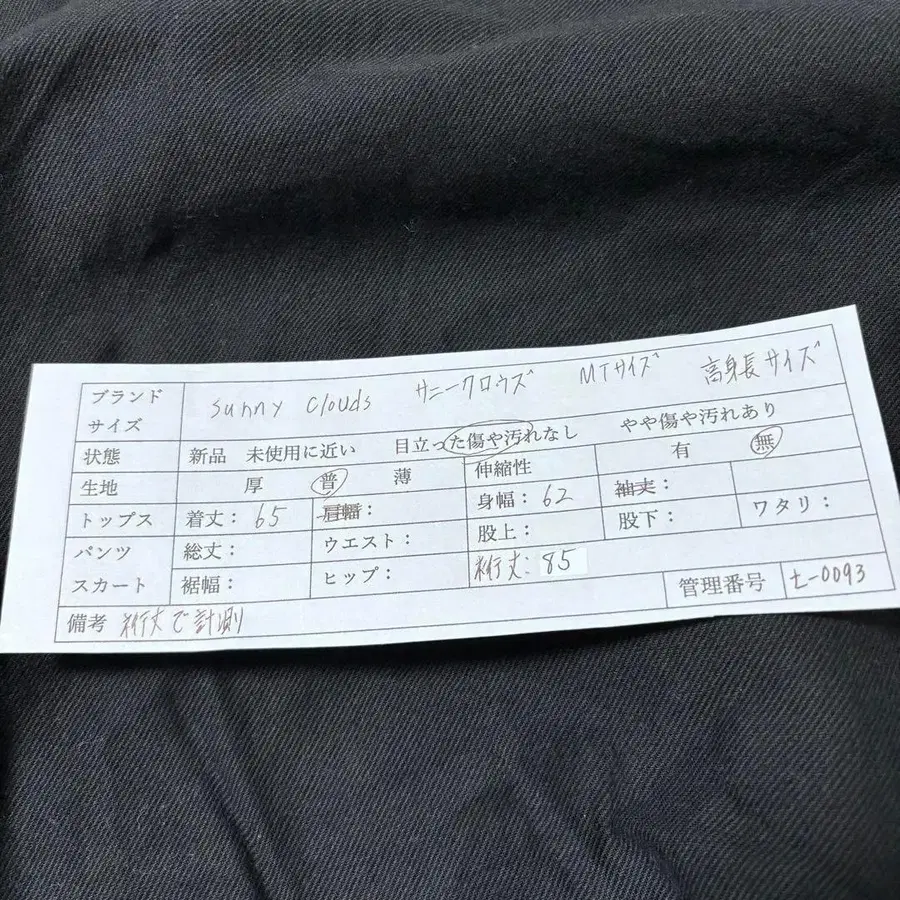 ブランド
サイズ
sunny clouds サニークロウズ MTサイズ 高身長サイズ
状態 新品 未使用に近い 目立った傷や汚れなし やや傷や汚れあり
生地 厚 普 薄 伸縮性 有 無
トップス 着丈：65 肩幅： 身幅：62 袖丈：
パンツ 総丈： ウエスト： 股上： 股下： ワタリ：
スカート 裾幅： ヒップ： 裄丈：85
管理番号 t-0093
備考 裄丈で計測